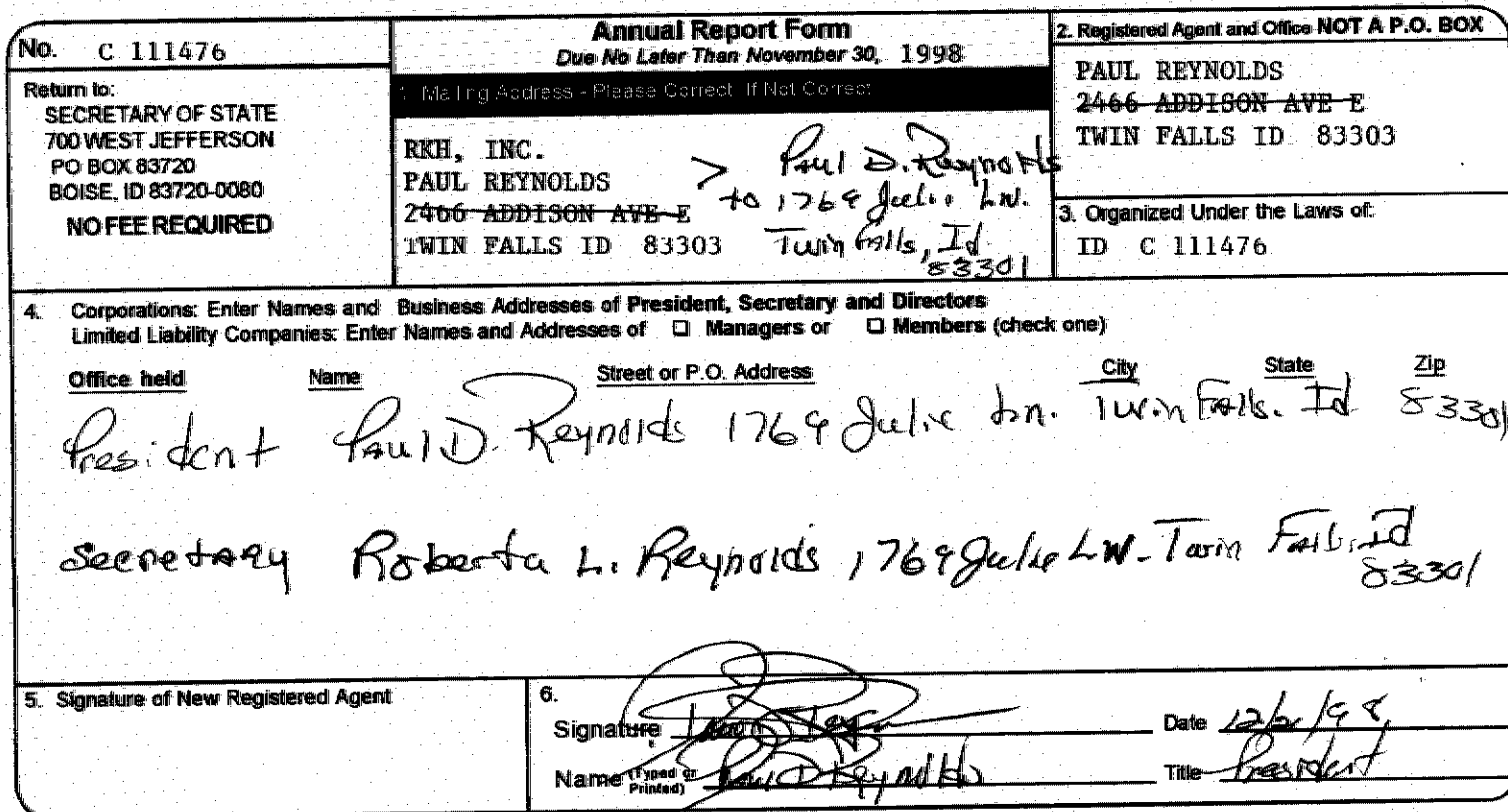 No. C 111476
Return to:
SECRETARY OF STATE
700 WEST JEFFERSON
PO BOX 83720
BOISE, ID 83720-0080
NO FEE REQUIRED
Annual Report Form
Due No Later Than November 30, 1998
1. Mailing Address - Please Correct If Not Correct
RKH, INC.
PAUL REYNOLDS
2466 ADDISON AVE E
TWIN FALLS ID 83303
> Paul D. Reynolds
to 1769 Julie LN.
Twin Falls, Id
83301
2. Registered Agent and Office NOT A P.O. BOX
PAUL REYNOLDS
2466 ADDISON AVE E
TWIN FALLS ID 83303
3. Organized Under the Laws of:
ID C 111476
4. Corporations: Enter Names and Business Addresses of President, Secretary and Directors
Limited Liability Companies: Enter Names and Addresses of ☐ Managers or ☐ Members (check one)
Office held Name Street or P.O. Address City State Zip
President Paul D. Reynolds 1769 Julie Ln. Twin Falls. Id 83301
Secretary Roberta L. Reynolds 1769 Julie LN. Twin Falls, Id
83301
5. Signature of New Registered Agent
6.
Signature
Date 12/2/98
Name (Typed or Printed) Paul D Reynolds
Title President